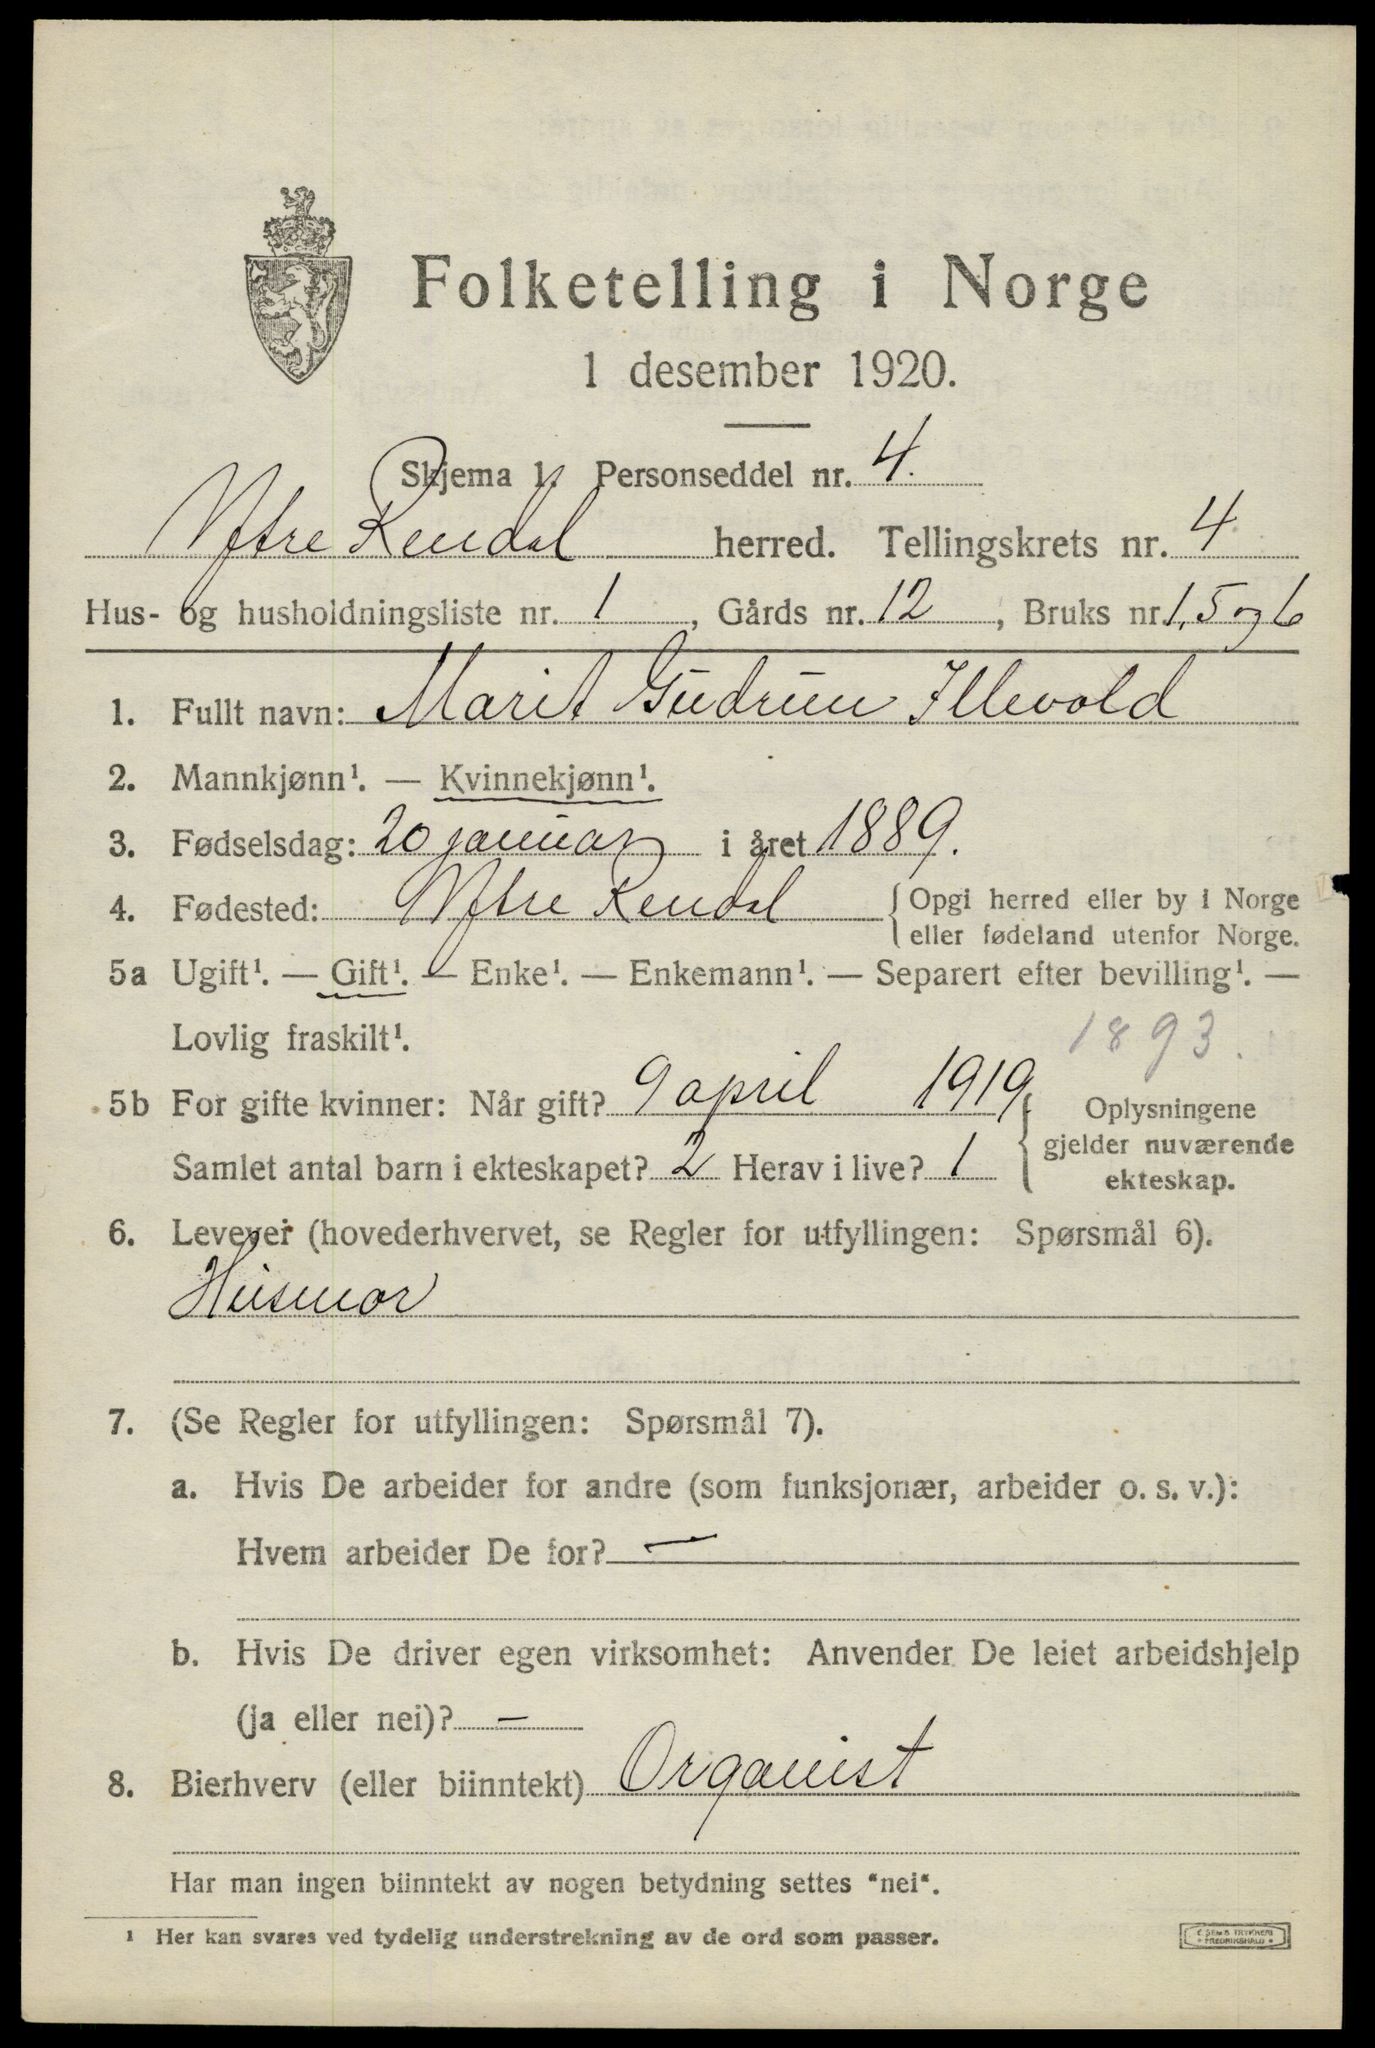 Folketelling i Norge
1 desember 1920.
Skjema 1. Personseddel nr. 4.
Ytre Rendal herred. Tellingskrets nr. 4
Hus- og husholdningsliste nr. 1, Gårds nr. 12, Bruks nr. 1, 5 og 6
1. Fullt navn: Marit Gudrun Illevold
2. Mannkjønn¹. — Kvinnekjønn¹.
3. Fødselsdag: 20 januar i året 1889.
4. Fødested: Ytre Rendal {Opgi herred eller by i Norge
eller fødeland utenfor Norge.
5a Ugift¹. — Gift¹. — Enke¹. — Enkemann¹. — Separert efter bevilling¹. —
Lovlig fraskilt¹.
1893.
5b For gifte kvinner: Når gift? 9 april 1919 { Oplysningene
gjelder nuværende
Samlet antal barn i ekteskapet? 2 Herav i live? 1
ekteskap.
6. Levevei (hovederhvervet, se Regler for utfyllingen: Spørsmål 6).
Husmor
7. (Se Regler for utfyllingen: Spørsmål 7).
a. Hvis De arbeider for andre (som funksjonær, arbeider o. s. v.):
Hvem arbeider De for? —
b. Hvis De driver egen virksomhet: Anvender De leiet arbeidshjelp
(ja eller nei)? —
8. Bierhverv (eller biinntekt) Organist
Har man ingen biinntekt av nogen betydning settes "nei".
¹ Her kan svares ved tydelig understrekning av de ord som passer.
E. SEMS TRYKKERI
FREDRIKSHALD